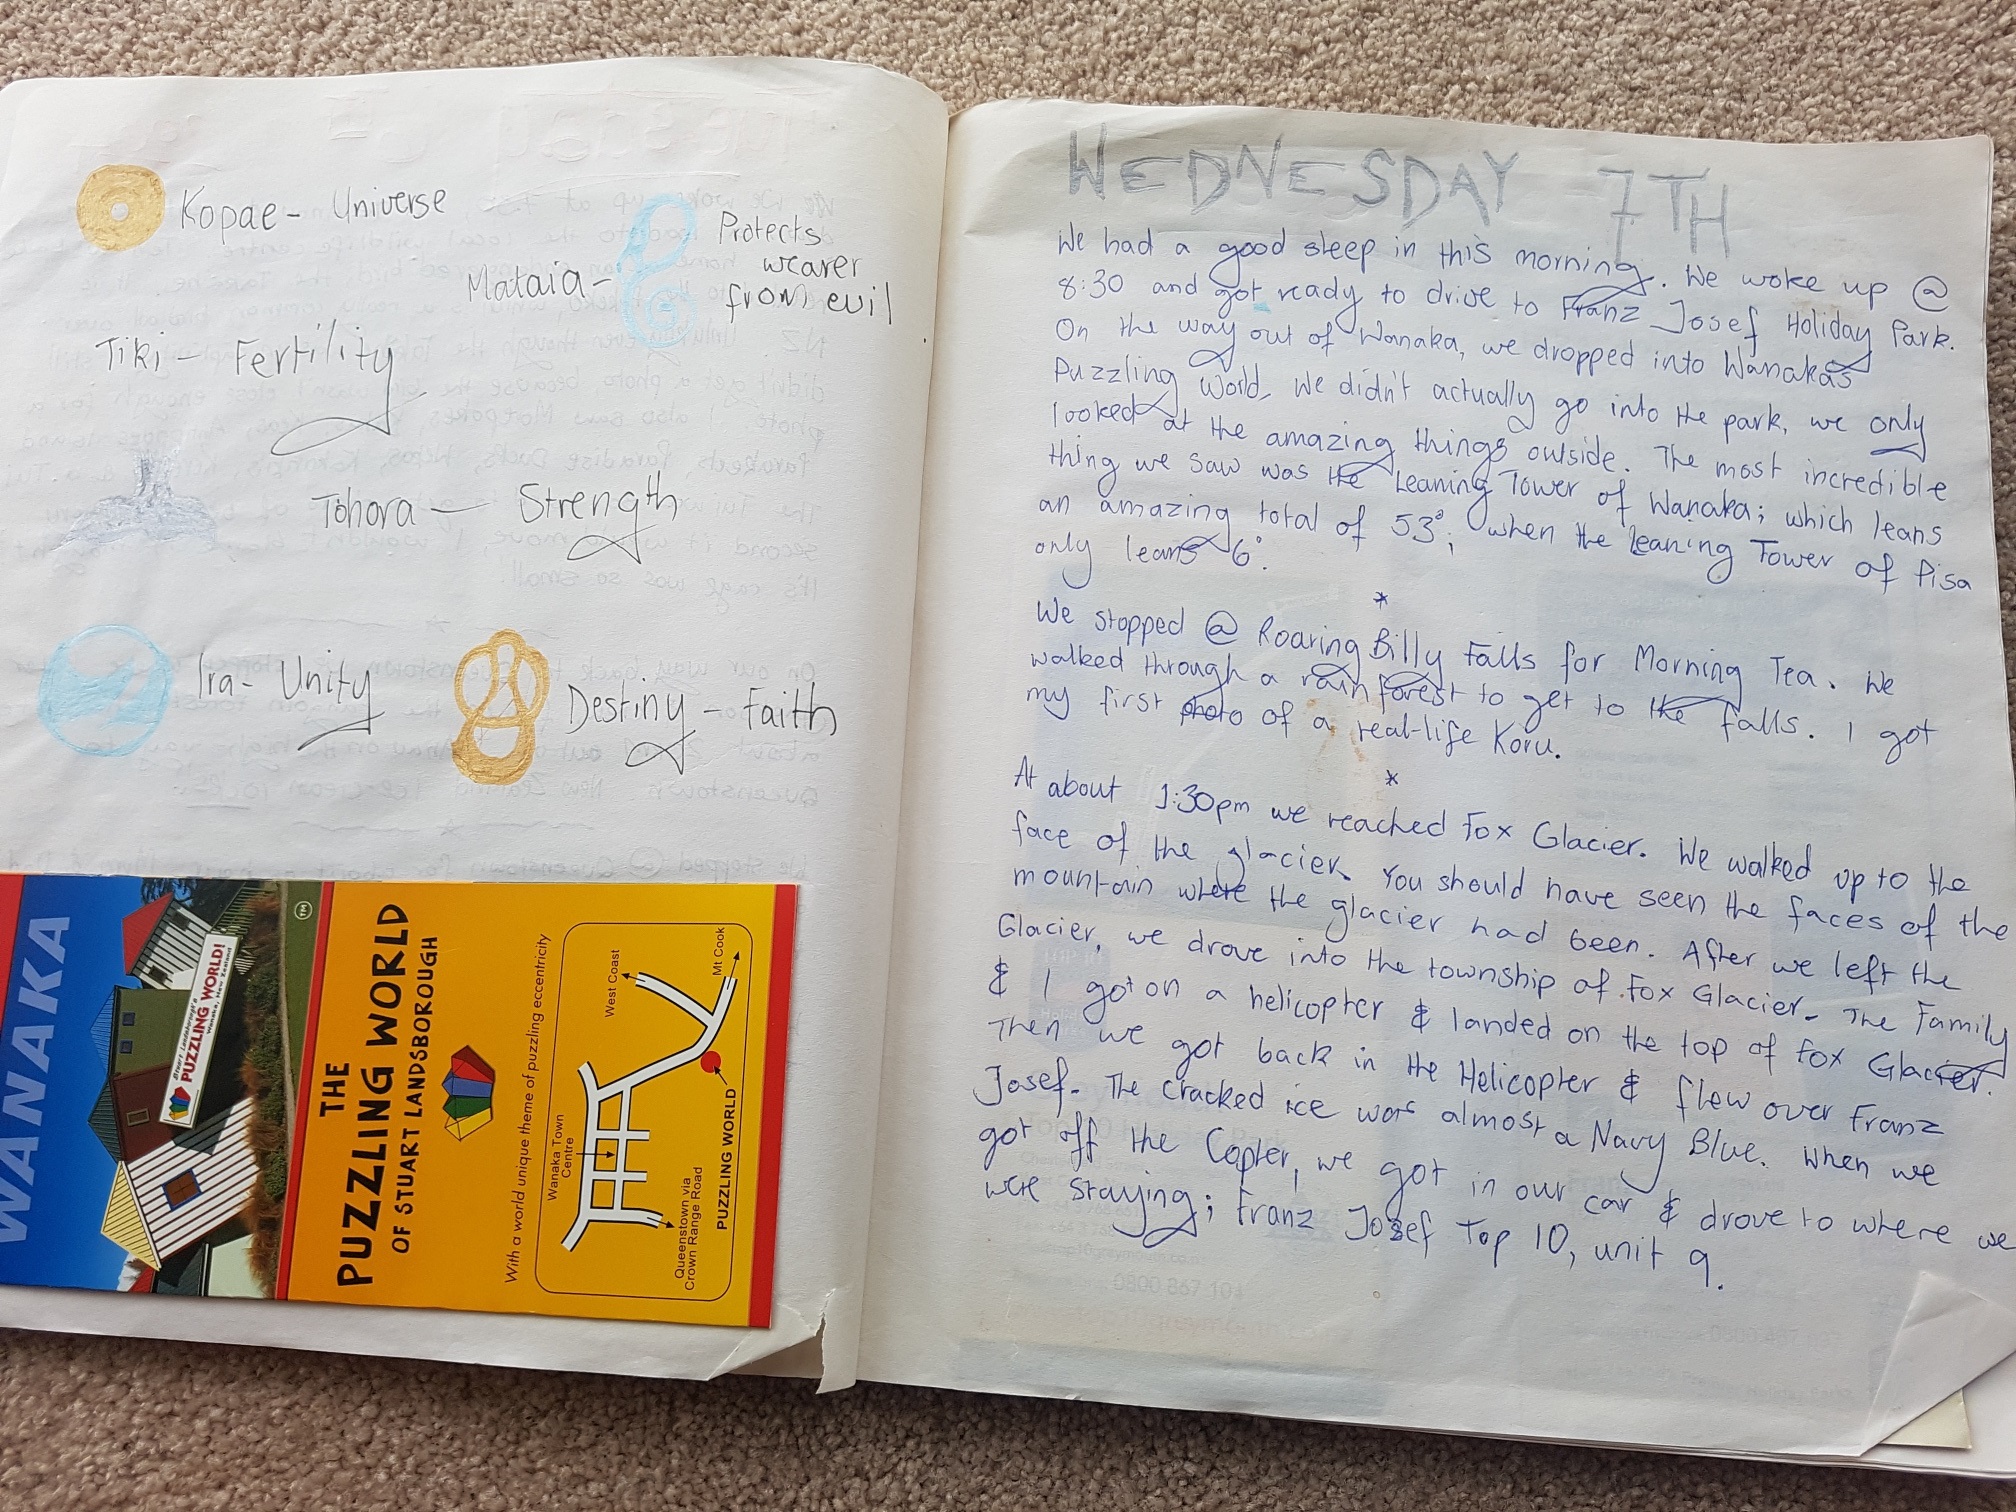 Kopae - Universe
Mataia -
Protects
wearer
from evil
Tiki - Fertility
Tohora - Strength
Ira - Unity
Destiny - Faith
WANAKA
Stuart Landsborough's
PUZZLING WORLD!
Wanaka, New Zealand
TM
THE
PUZZLING WORLD
OF STUART LANDSBOROUGH
With a world unique theme of puzzling eccentricity
West Coast
Mt Cook
Wanaka Town
Centre
Queenstown via
Crown Range Road
PUZZLING WORLD
WEDNESDAY 7TH
We had a good sleep in this morning. We woke up @
8:30 and got ready to drive to Franz Josef Holiday Park.
On the way out of Wanaka, we dropped into Wanakas
Puzzling World. We didn't actually go into the park, we only
looked at the amazing things outside. The most incredible
thing we saw was the Leaning Tower of Wanaka; which leans
an amazing total of 53°; when the leaning Tower of Pisa
only leans 6°.
*
We stopped @ Roaring Billy Falls for Morning Tea. We
walked through a rain forest to get to the falls. I got
my first photo of a real-life Koru.
*
At about 1:30pm we reached Fox Glacier. We walked up to the
face of the glacier. You should have seen the faces of the
mountain where the glacier had been. After we left the
Glacier, we drove into the township of Fox Glacier. The Family
& I got on a helicopter & landed on the top of Fox Glacier.
Then we got back in the Helicopter & flew over Franz
Josef. The cracked ice was almost a Navy Blue. When we
got off the Copter, we got in our car & drove to where we
were staying; Franz Josef Top 10, unit 9.